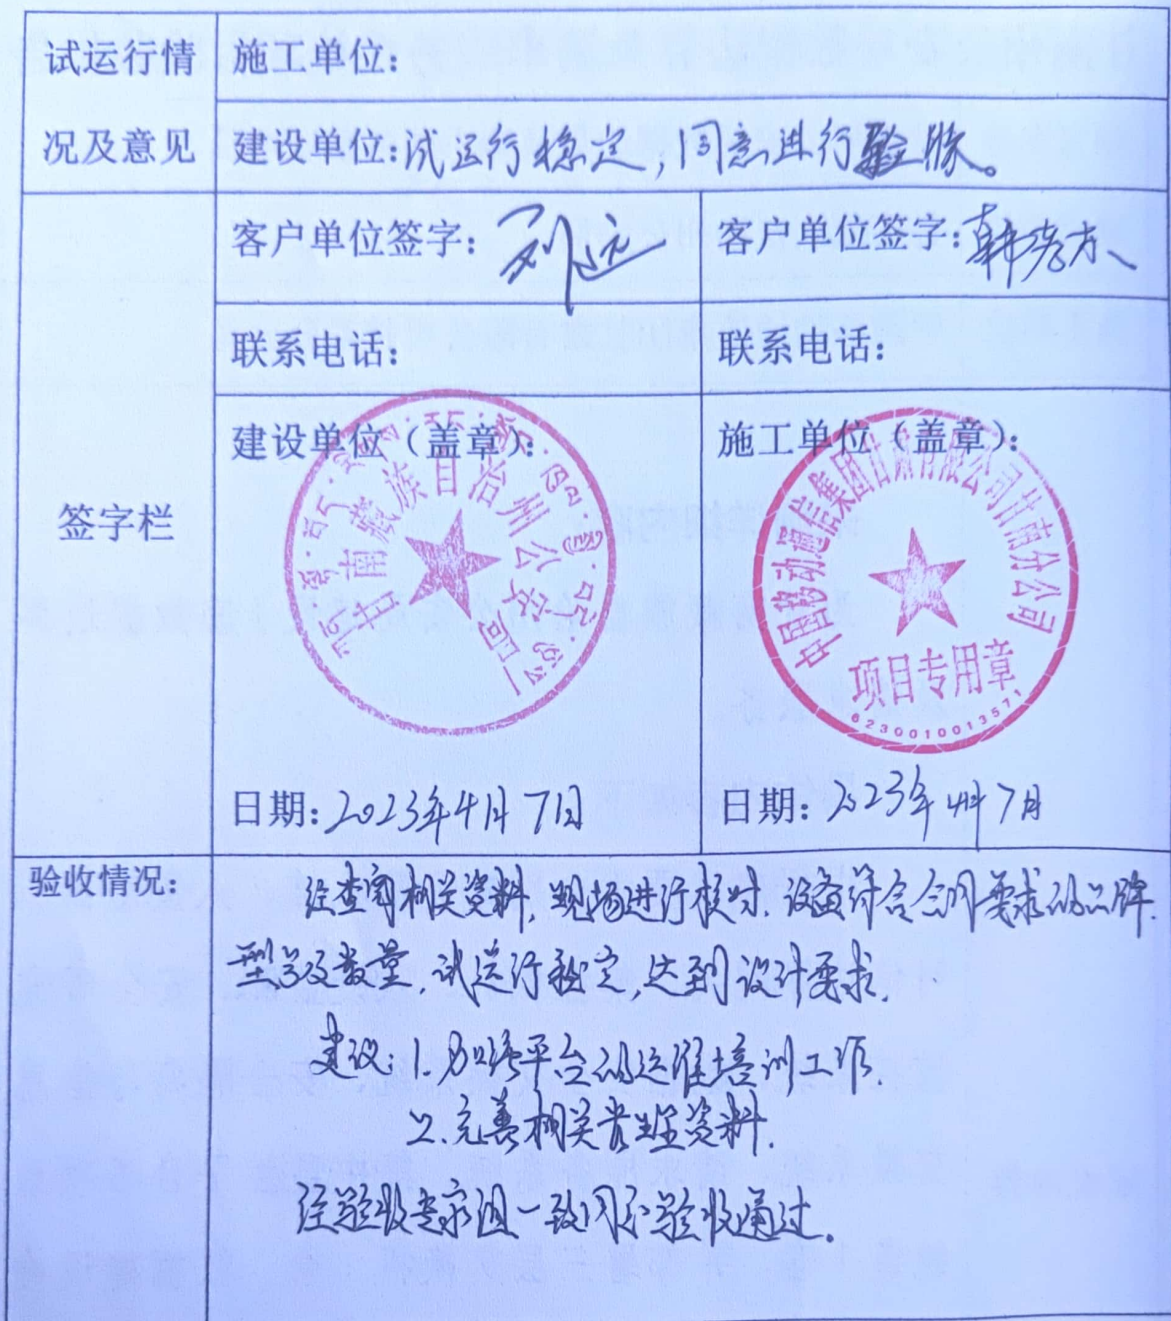 试运行情
况及意见
施工单位:
建设单位:试运行稳定,同意进行验收。
签字栏
客户单位签字:
客户单位签字:韩
联系电话:
联系电话:
建设单位（盖章）:
甘南藏族自治州公安局
日期:2023年4月7日
施工单位（盖章）:
中国移动通信集团甘肃有限公司甘南分公司
项目专用章
6230010013571
日期:2023年4月7日
验收情况:
经查阅相关资料,现场进行核对.设备符合合同要求的品牌.
型号及数量,试运行稳定,达到设计要求.
建议:1.加强平台的运维培训工作.
2.完善相关资料.
经验收专家组一致同意验收通过.